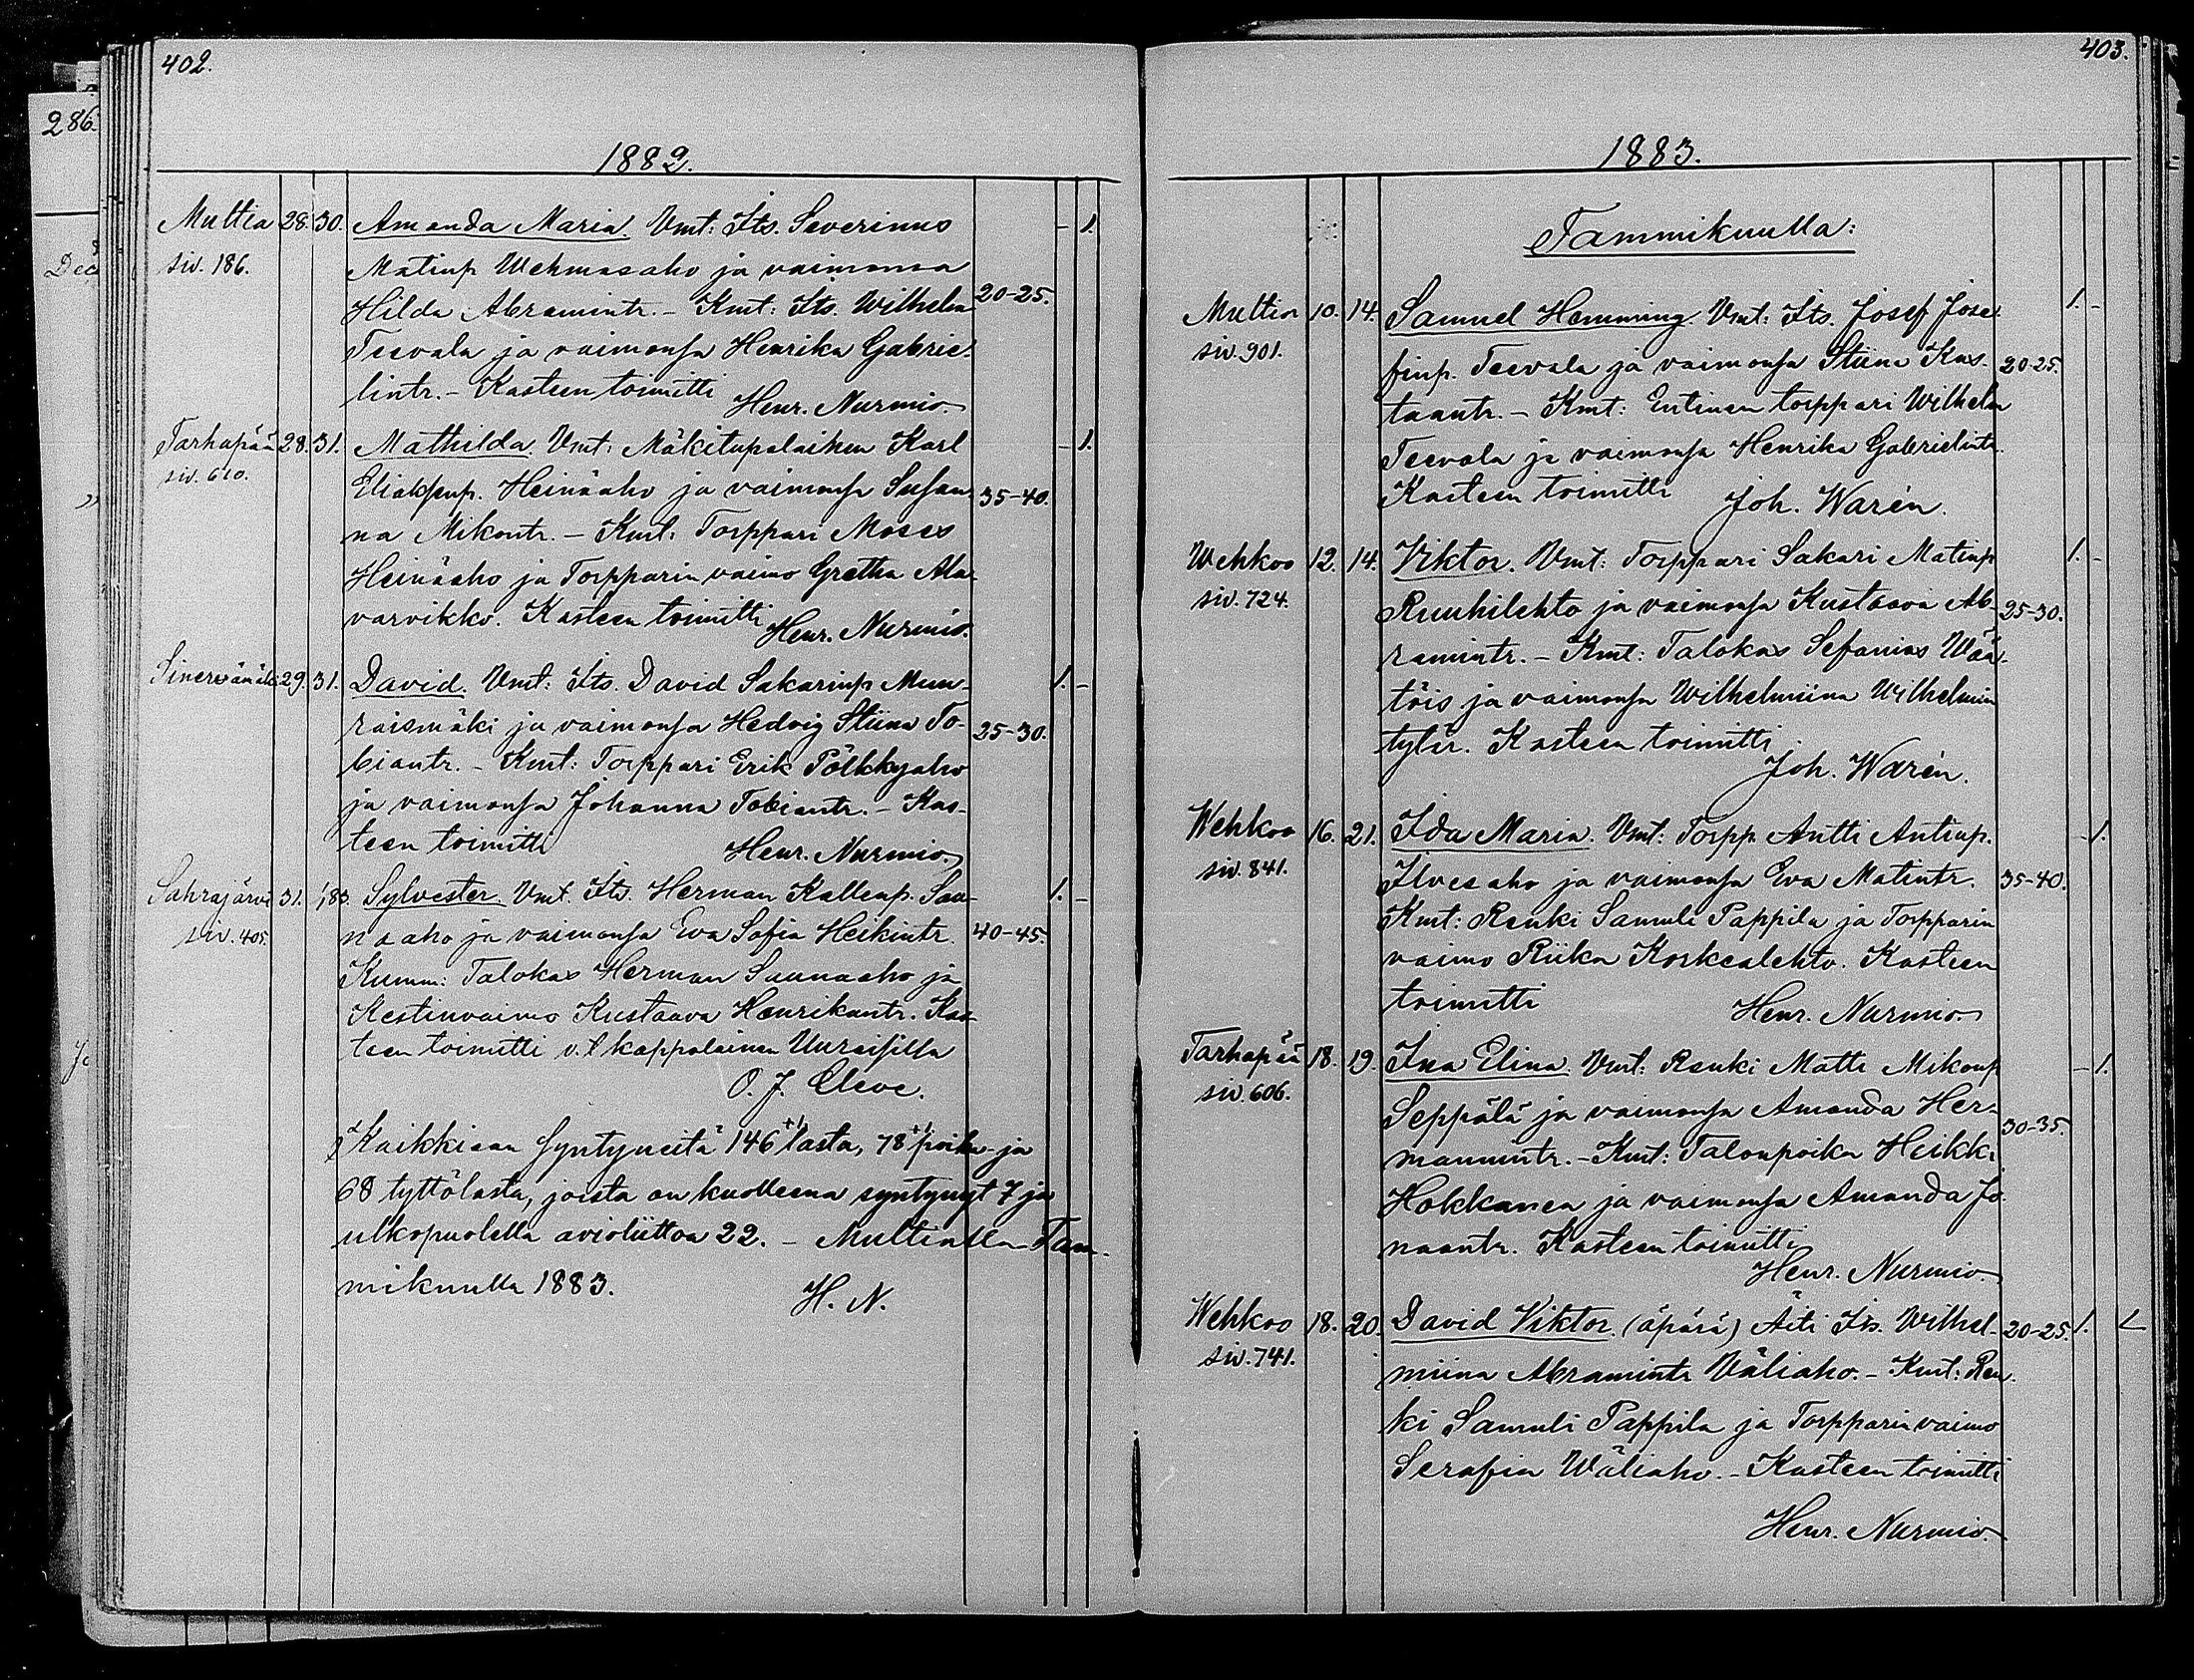 402.
1882.
Multia 28. 30. Amanda Maria. Vmt: Its. Severinus – 1.
siv. 186. Matinp Wehmasaho ja vaimonsa
Hilda Abramintr. – Kmt: Its. Wilhelm 20-25.
Teevala ja vaimonsa Henrika Gabrie-
lintr. – Kasteen toimitti Henr. Nurmio.
Tarhapää 28. 31. Mathilda. Vmt: Mäkitupalainen Karl – 1.
siv. 610. Eliaksenp. Heinäaho ja vaimonsa Susan- 35-40.
na Mikontr. – Kmt: Torppari Moses
Heinäaho ja Torpparin vaimo Gretha Ala-
varvikko. Kasteen toimitti Henr. Nurmio.
Sinervämäki 29. 31. David. Vmt: Its. David Sakarinp Muu- 1. –
raismäki ja vaimonsa Hedvig Stiina To- 25-30.
biantr. – Kmt: Torppari Erik Pölkkyaho
ja vaimonsa Johanna Tobiantr. – Kas-
teen toimitti Henr. Nurmio.
Sahrajärvi 31. 1/83. Sylvester. Vmt. Its. Herman Kallenp. Sau- 1. –
siv. 405. naaho ja vaimonsa Eva Sofia Heikintr. 40-45.
Kumm: Talokas Herman Saunaaho ja
Kestinvaimo Kustaava Henrikantr. Kas-
teen toimitti v.t kappalainen Uuraisilla
O. J. Cleve.
Kaikkiaan syntyneitä 146 +1 lasta, 78 +1 poika- ja
68 tyttölasta, joista on kuolleena syntynyt 7 ja
ulkopuolella avioliittoa 22. – Multialla Tam-
mikuulla 1883. H. N.
403.
1883.
Tammikuulla:
Multia 10. 14. Samuel Hemming. Vmt: Its. Josef Jose- 1. –
siv. 901. finp. Teevala ja vaimonsa Stiina Kus- 20-25.
taantr. – Kmt: Entinen torppari Wilhelm
Teevala ja vaimonsa Henrika Gabrielintr.
Kasteen toimitti Joh. Warén.
Wehkoo 12. 14. Viktor. Vmt: Torppari Sakari Matinp 1. –
siv. 724. Ruuhilehto ja vaimonsa Kustaava Ab- 25-30.
ramintr. – Kmt: Talokas Sefanias Wää-
töis ja vaimonsa Wilhelmiina Wilhelmin
tytär. Kasteen toimitti
Joh. Warén.
Wehkoo 16. 21. Ida Maria. Vmt: Torpp. Antti Antinp. – 1.
siv. 841. Ilvesaho ja vaimonsa Eva Matintr. 35-40.
Kmt: Renki Samuli Pappila ja Torpparin
vaimo Riika Koskealehto. Kasteen
toimitti Henr. Nurmio.
Tarhapää 18. 19. Ina Elina. Vmt: Renki Matti Mikonp – 1.
siv. 606. Seppälä ja vaimonsa Amanda Her- 30-35.
mannintr. – Kmt: Talonpoika Heikki
Hokkanen ja vaimonsa Amanda Jo-
naantr. Kasteen toimitti
Henr. Nurmio.
Wehkoo 18. 20. David Viktor. (äpärä) Äiti Its. Wilhel- 20-25. 1.
siv. 741. miina Abramintr Väliaho. – Kmt: Ren-
ki Samuli Pappila ja Torpparin vaimo
Serafia Wäliaho. – Kasteen toimitti
Henr. Nurmio.
286.
Dec